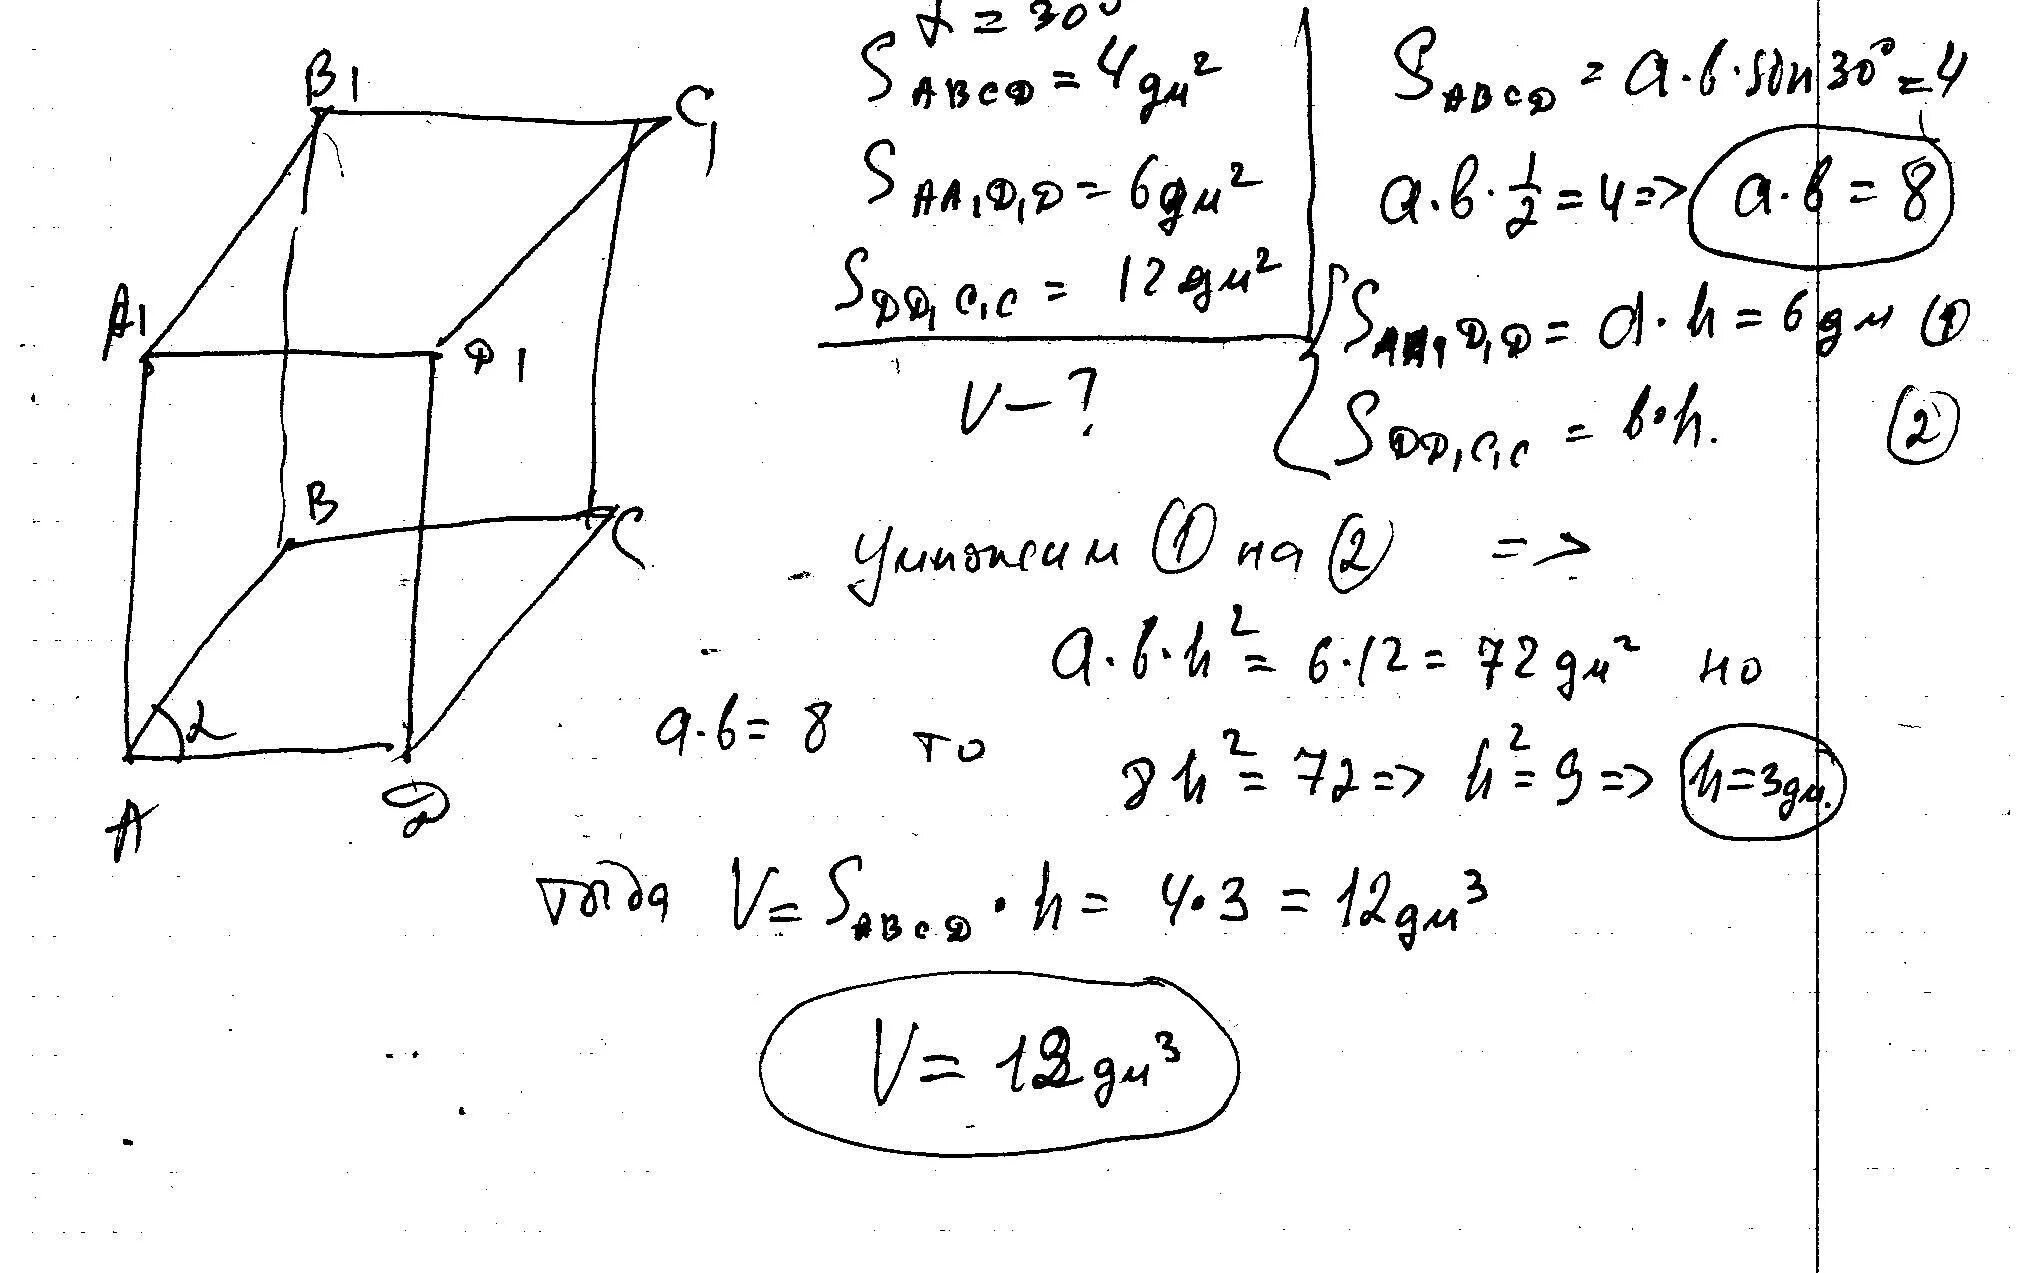 α = 30°
S ABCD = 4 дм²
S AA₁D₁D = 6 дм²
S DD₁C₁C = 12 дм²
V – ?
S ABCD = a · b · sin 30° = 4
a · b · 1/2 = 4 => a · b = 8
S AA₁D₁D = a · h = 6 дм (1)
S DD₁C₁C = b · h. (2)
Умножим (1) на (2) =>
a · b · h² = 6 · 12 = 72 дм² но
a · b = 8 то 8h² = 72 => h² = 9 => h = 3 дм.
тогда V = S ABCD · h = 4 · 3 = 12 дм³
V = 12 дм³
B₁
C₁
A₁
D₁
B
C
α
A
D